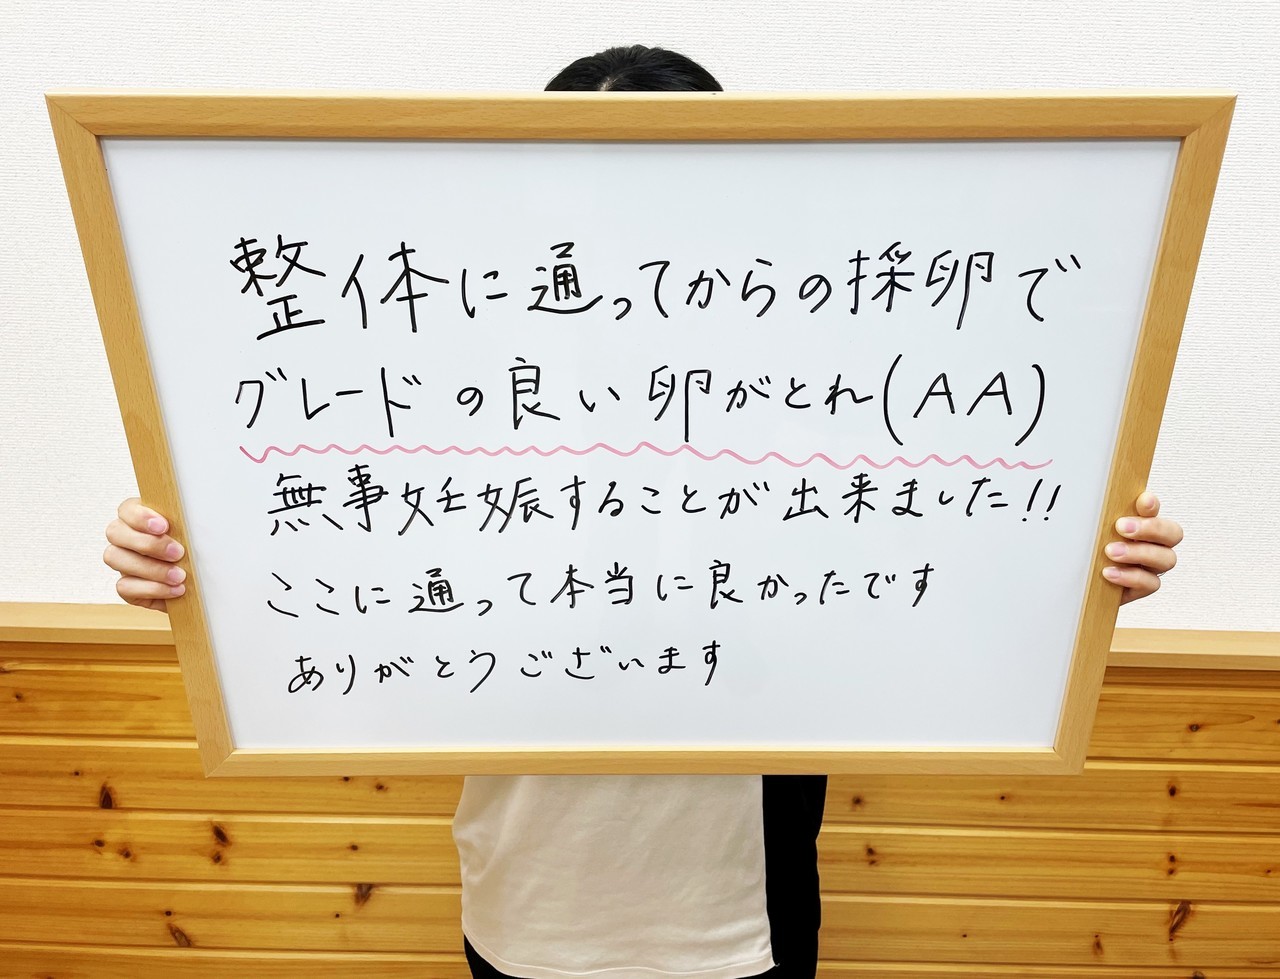 整体に通ってからの採卵で
グレードの良い卵がとれ(AA)
無事妊娠することが出来ました!!
ここに通って本当に良かったです
ありがとうございます